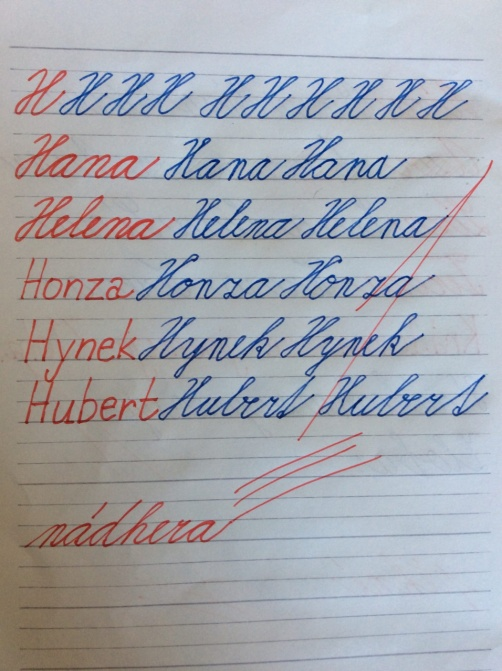 H H H H H H H H H H
Hana Hana Hana
Helena Helena Helena
Honza Honza Honza
Hynek Hynek Hynek
Hubert Hubert Hubert
nádhera